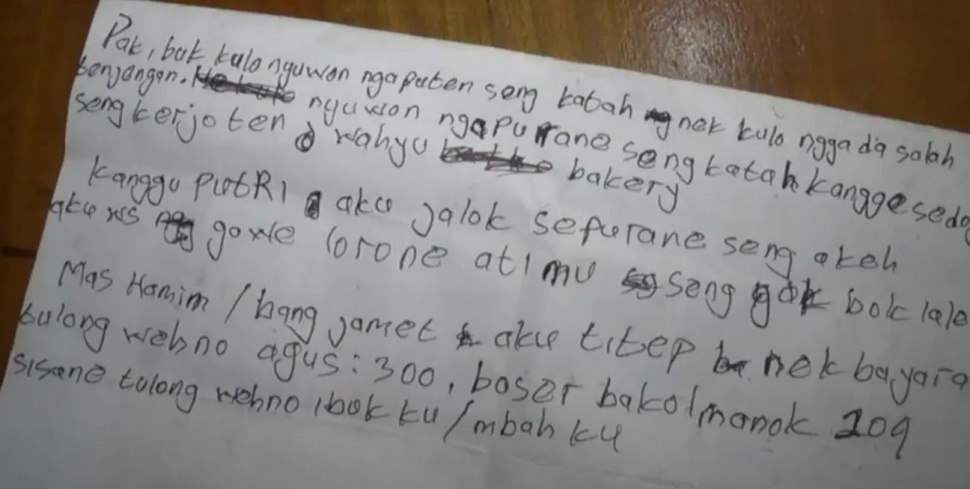 Pak, buk kulo nyuwon ngaputen seng katah nek kulo nggada salah
benjengan. nyuwon ngapurane seng katah kangge sedo
seng kerjo ten wahyu bakery
Kanggu PutRI aku jalok sepurane seng akeh
aku ws gawe lorone atimu seng gak bok lale
Mas Hamim / bang jamet aku titep nek bayara
tulong wehno agus : 300, boser bakol manok 209
sisane tulong wehno ibok ku / mbah ku